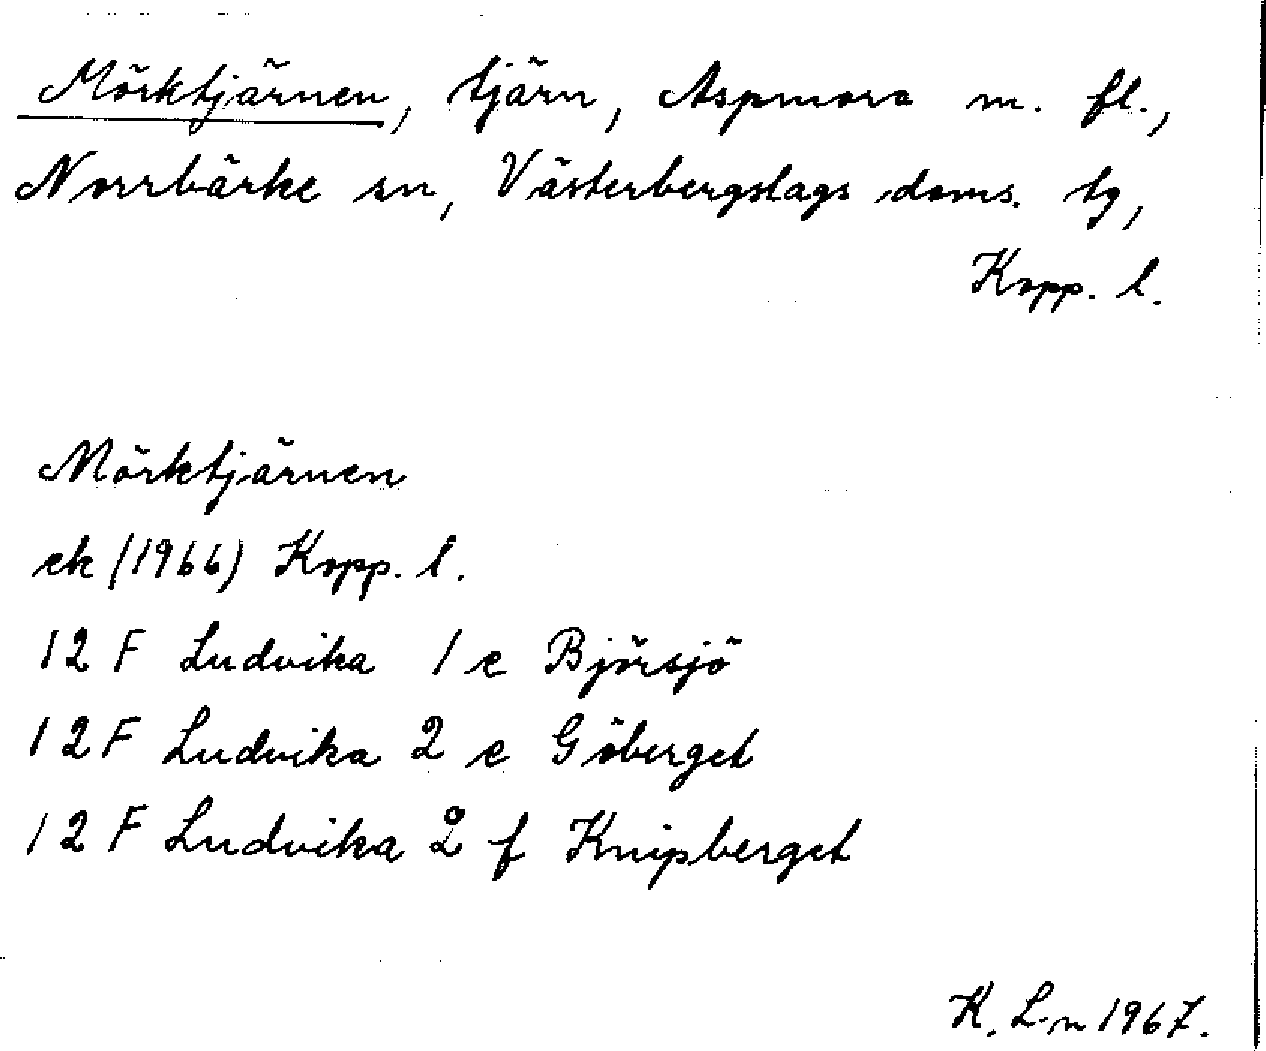 Mörktjärnen, tjärn, Aspmora m. fl.,
Norrbärke sn, Västerbergslags doms. tg,
Kopp. l.
Mörktjärnen
ek (1966) Kopp. l.
12 F Ludvika 1 e Björsjö
12 F Ludvika 2 e Göberget
12 F Ludvika 2 f Knipberget
K. L-n 1967.